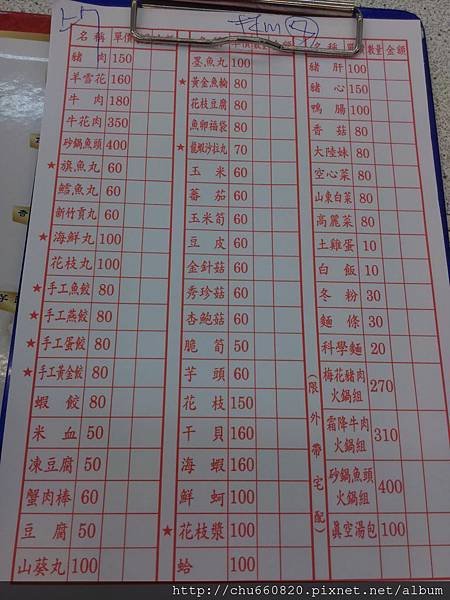 名稱 單價
豬肉 150
羊雪花 160
牛肉 180
牛花肉 350
砂鍋魚頭 400
★ 旗魚丸 60
鱈魚丸 60
新竹貢丸 60
★ 海鮮丸 100
花枝丸 100
★ 手工魚餃 80
★ 手工燕餃 80
★ 手工蛋餃 80
★ 手工黃金餃 80
蝦餃 80
米血 50
凍豆腐 50
蟹肉棒 60
豆腐 50
山葵丸 100
墨魚丸 100
★ 黃金魚輪 80
花枝豆腐 80
魚卵福袋 80
★ 龍蝦沙拉丸 70
玉米 60
蕃茄 60
玉米筍 60
豆皮 60
金針菇 60
秀珍菇 60
杏鮑菇 60
脆筍 50
芋頭 60
花枝 150
干貝 160
海蝦 160
鮮蚵 100
★ 花枝漿 100
蛤 100
名稱 單 數量 金額
豬肝 100
豬心 150
鴨腸 100
香菇 80
大陸妹 80
空心菜 80
山東白菜 80
高麗菜 80
土雞蛋 10
白飯 10
冬粉 30
麵條 30
科學麵 20
(限外帶宅配)
梅花豬肉火鍋組 270
霜降牛肉火鍋組 310
砂鍋魚頭火鍋組 400
真空湯包 100
http://chu660820.pixnet.net/album